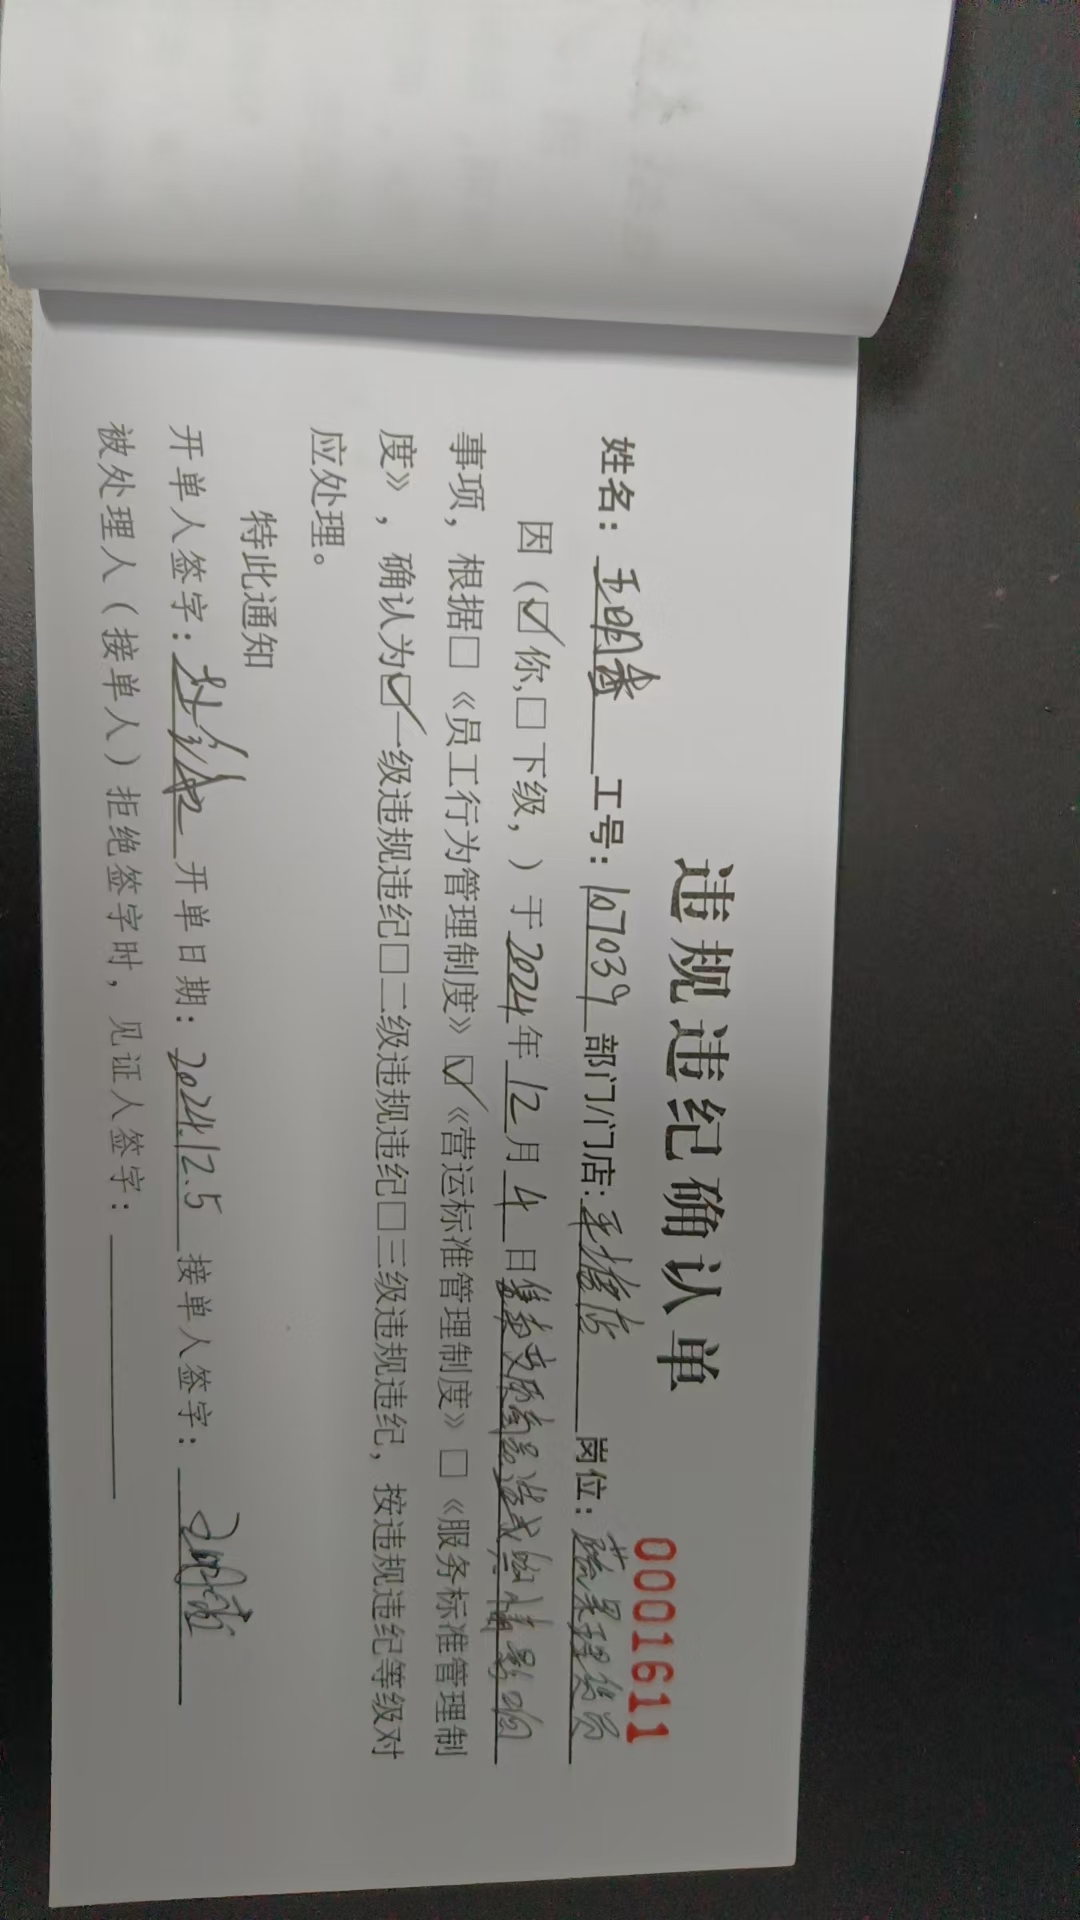 违规违纪确认单
0001611
姓名：王明 工号：107039 部门/门店： 店 岗位：蔬果理货员
因（☑你,□下级，）于2024年12月4日 造成 影响
事项，根据□《员工行为管理制度》☑《营运标准管理制度》□《服务标准管理制
度》，确认为☑一级违规违纪□二级违规违纪□三级违规违纪，按违规违纪等级对
应处理。
特此通知
开单人签字： 开单日期：2024.12.5 接单人签字：王明
被处理人（接单人）拒绝签字时，见证人签字：